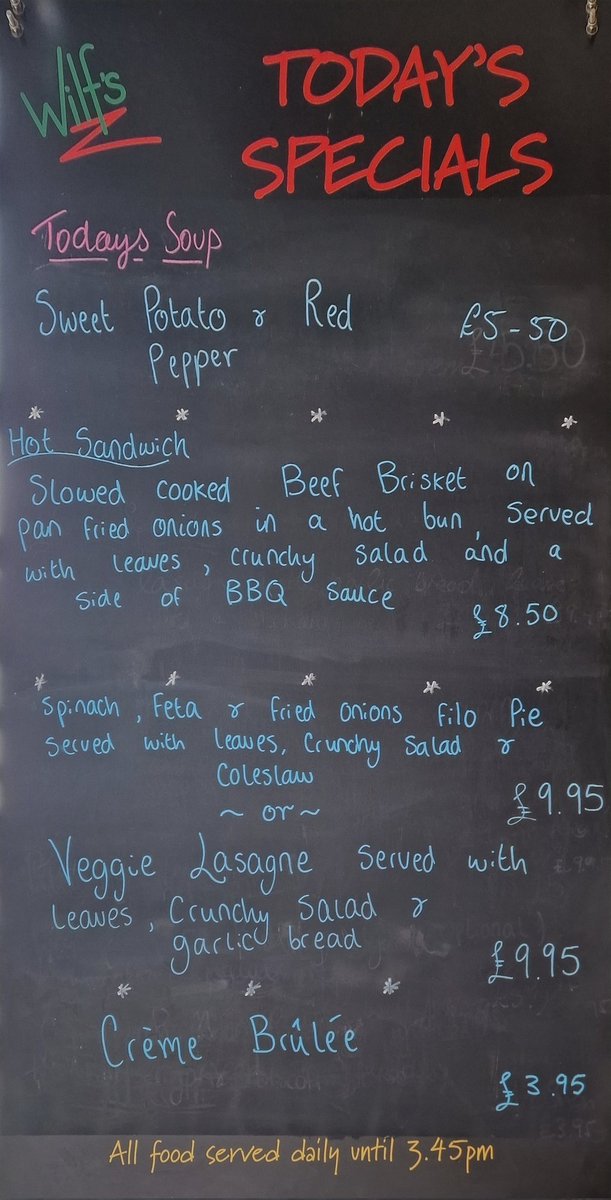 Wilf's
TODAY'S
SPECIALS
Todays Soup
Sweet Potato & Red
Pepper
£5-50
* * * * *
Hot Sandwich
Slowed cooked Beef Brisket on
pan fried onions in a hot bun, served
with leaves, crunchy salad and a
side of BBQ sauce
£8.50
* * * * *
Spinach, Feta & fried onions Filo Pie
served with leaves, crunchy salad &
Coleslaw
~ or ~
£9.95
Veggie Lasagne served with
leaves, Crunchy Salad &
garlic bread
£9.95
* * *
Crème Brûlée
£3.95
All food served daily until 3.45pm